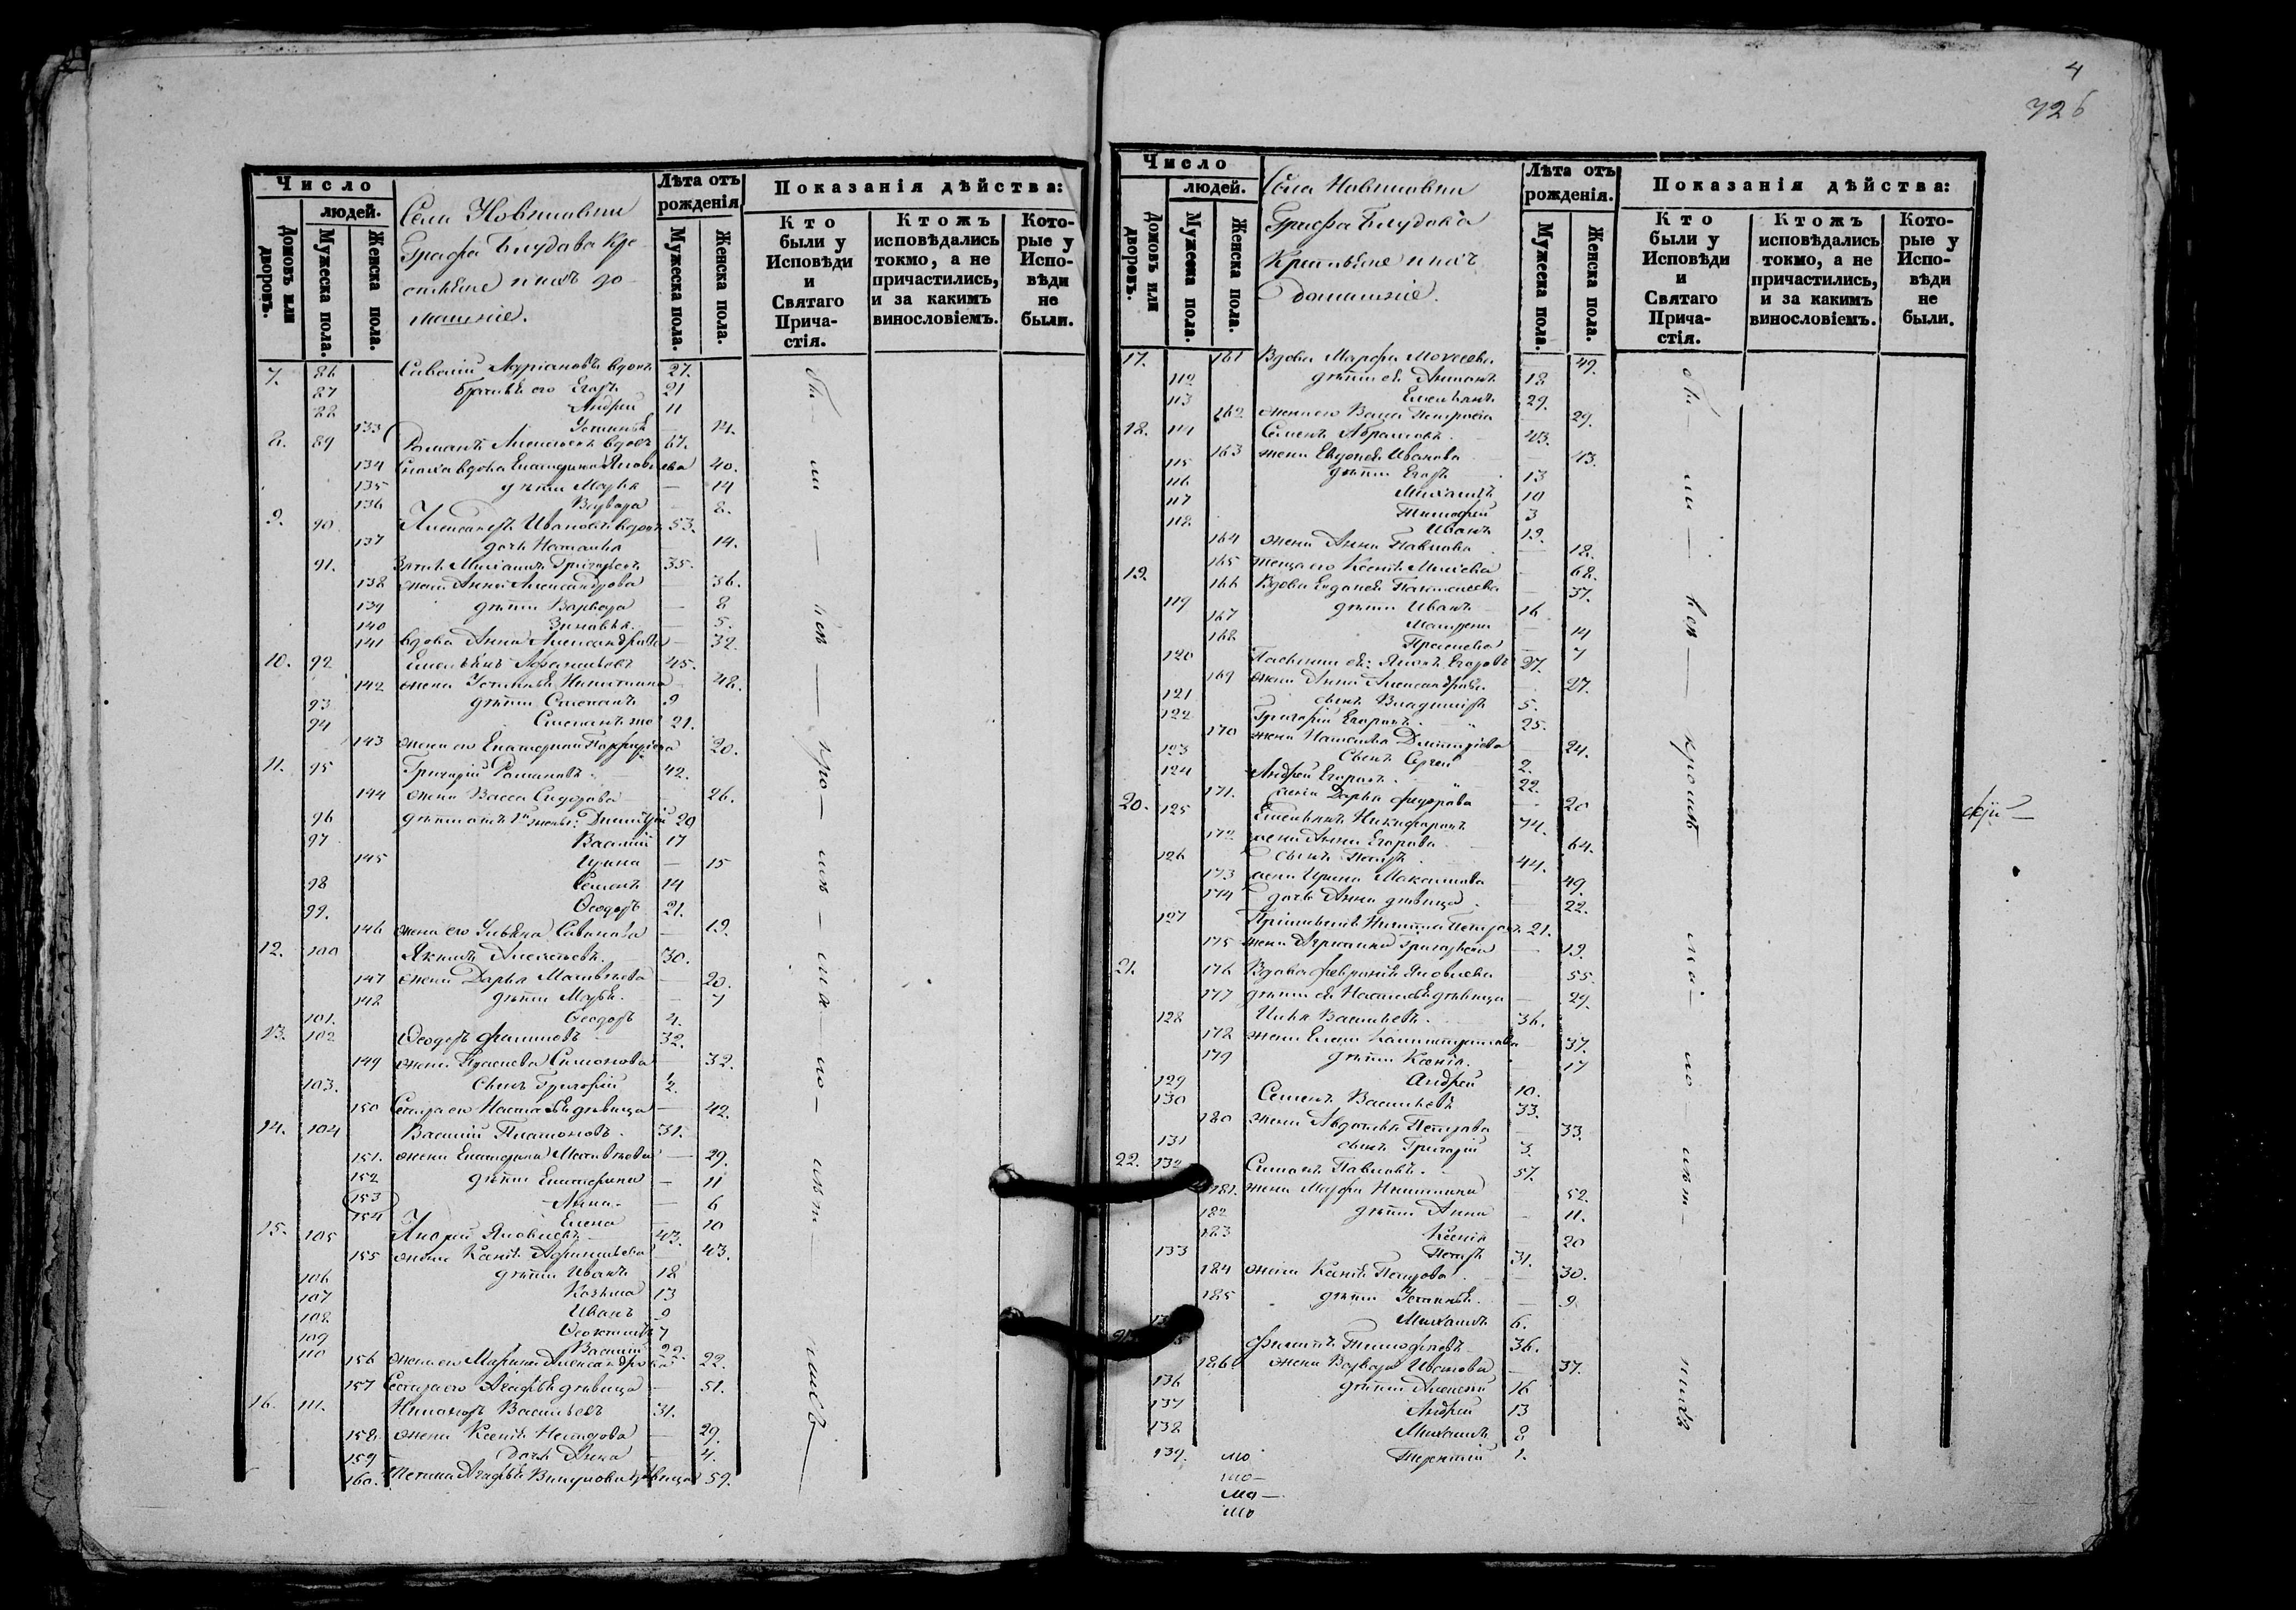 4
726
Число
людей.
Домовъ или дворовъ.
Мужеска пола.
Женска пола.
Села
Графа Блудова Кре-
стьяне и ихъ до-
машніе.
Лѣта отъ рожденія
Мужеска пола.
Женска пола.
Показанія дѣйства:
Кто были у Исповѣди и Святаго Прича-стія.
Ктожъ исповѣдались токмо, а не причастились, и за какимъ винословіемъ.
Кото-рые у Испо-вѣди не были.
7. 86 Савелій Адріановъ вдовъ 27.
87 братья его Егоръ 21
88 Андрей 11
133 Устинья 14.
8. 89 Романъ вдовъ 67.
134 Сноха вдова Екатерина Яковлева 40.
135 дѣти Марья — 14
136 Варвара 8.
9. 90 Александръ Ивановъ вдовъ 53.
137 дочь Наталья 14.
91. Зять Михаилъ Григорьевъ 35.
138 жена Анна Александрова 36.
139 дѣти Варвара — 8
140 Зиновья — 5.
141 вдова Анна Александрова — 32.
10. 92 Емельянъ Афанасьевъ 45.
142 жена Устинья Никитина 48.
93 дѣти Степанъ 9
94 Степанъ же 21.
143 жена его Екатерина Парфирьева 20.
11. 95 Григорій Романовъ 42.
144 жена Васса Сидорова 26.
96 дѣти отъ 1й жены: Димитрій 20
97 Василій 17
145 Ирина — 15
98 Семенъ 14
99. Ѳеодоръ 21.
146 жена его Ульяна — 19.
12. 100 Якимъ 30.
147 жена Дарья Матвѣева — 20.
148 дѣти Марья. — 7
101. Ѳеодоръ 4.
13. 102 Ѳеодоръ Филиповъ 32.
149 жена Прасковья Симонова 32.
103. сынъ Григорій
150 Сестра его Наталья дѣвица — 42.
14. 104 Василій Платоновъ 31.
151. жена Екатерина Матвѣева — 29.
152 дѣти Екатерина — 11
153 Анна — 6
154 Елена 10
15. 105 Андрей Яковлевъ 43.
155 жена Ксенія Афанасьева 43.
106 дѣти Иванъ 18
107 Козьма 13
108 Иванъ 9
109 7
110 Василій 22.
156 жена его Марина Александрова 22.
157 Сестра его Агафья дѣвица 51.
16. 111. Никаноръ Васильевъ 31.
158 жена Ксенія 29.
159 дочь Анна 4.
160. Тетка Агафья дѣвица 59.
бы — ли — всѣ — кро — мѣ — ма — ло — лѣт — нихъ
Число
людей.
Домовъ или дворовъ.
Мужеска пола.
Женска пола.
Села
Графа Блудова
Крестьяне и ихъ
домашніе.
Лѣта отъ рожденія.
Мужеска пола.
Женска пола.
Показанія дѣйства:
Кто были у Исповѣди и Святаго Прича-стія.
Ктожъ исповѣдались токмо, а не причастились, и за какимъ винословіемъ.
Кото-рые у Испо-вѣди не были.
17. 161 Вдова Марфа Моисеева 49.
112 дѣти ея 18
113 Емельянъ 29.
162 жена его 29.
18. 114 Семенъ Абрамовъ 43.
163 жена Евдокія Иванова 43.
115 дѣти Егоръ 13
116 Михаилъ 10
117 Тимофей 3
118 Иванъ 19.
164 жена Анна Павлова 18.
165 теща его Ксенія Михеева 68.
19. 166 Вдова Евдокія Пантелеева 37.
119 дѣти Иванъ 16
167 Матрена 14
168 Прасковья 7
120 Пасынки ея: Яковъ Егоровъ 27.
169 жена Анна Александрова 27.
121 сынъ Владиміръ 5.
122 Григорій Егоровъ 25.
170 жена Наталья Димитріева 24.
123 Сынъ Сергей 2.
124 Андрей Егоровъ 22.
171. жена Дарья Федорова 20
20. 125 Емельянъ Никифоровъ 74.
172 жена Анна Егорова 64.
126 сынъ Петръ 44.
173 жена Ирина Максимова 49.
174 дочь Анна дѣвица 22.
127 Никита Петровъ 21.
175 жена Григорьева 19.
21. 176 Вдова Февронія Яковлева 55.
177 дѣти ея Наталья дѣвица — 29.
128 Илья Васильевъ 36.
178 жена Елена 37.
179 дѣти Ксенія 17
129 Андрей 10.
130 Семенъ Васильевъ 33.
180 жена Авдотья Петрова 33.
131 сынъ Григорій 3.
22. 132 Симонъ Павловъ 57.
181. жена Марфа Никитина 52.
182 дѣти Анна — 11.
183 Ксенія 20
133 Петръ 31.
184 жена Ксенія Петрова 30.
185 дѣти Устинья — 9.
Михаилъ 6.
Филипъ Тимофеевъ 36.
186 жена Варвара 37.
136 дѣти Алексей 16
137 Андрей 13
138 Михаилъ 8
139. Терентій 1.
бы — ли — всѣ — кромѣ — ма — ло — лѣт — нихъ
мо
мо—
мо—
мо